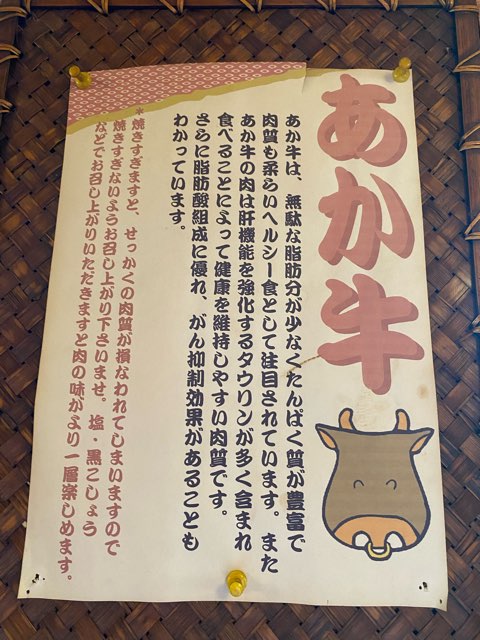 あか牛
あか牛は、無駄な脂肪分が少なくたんぱく質が豊富で
肉質も柔らいヘルシー食として注目されています。また
あか牛の肉は肝機能を強化するタウリンが多く含まれ
食べることによって健康を維持しやすい肉質です。
さらに脂肪酸組成に優れ、がん抑制効果があることも
わかっています。
＊焼きすぎますと、せっかくの肉質が損なわれてしまいますので
焼きすぎないようお召し上がり下さいませ。塩・黒こしょう
などでお召し上がりいただきますと肉の味がより一層楽しめます。